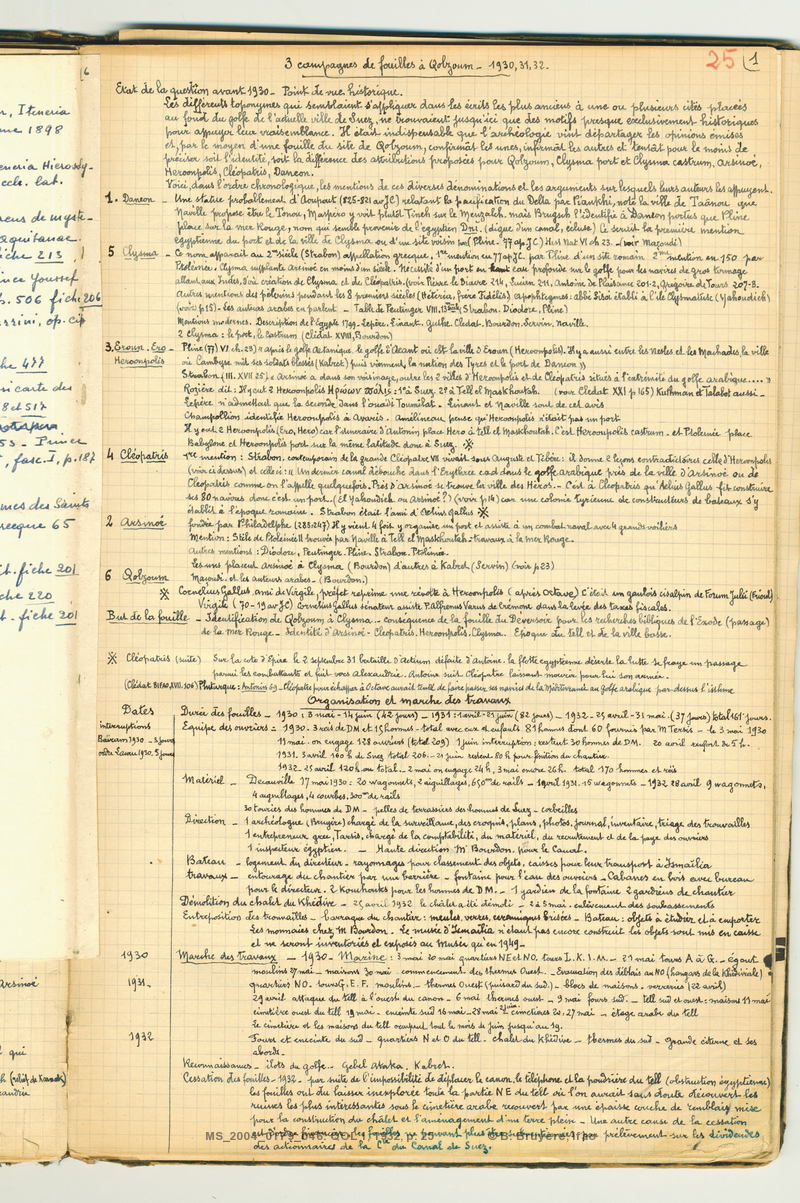 25 1
3 campagnes de fouilles à Qolzoum - 1930, 31, 32.
Etat de la question avant 1930 - Point de vue historique.
Les différents toponymes qui semblaient s'appliquer dans les écrits les plus anciens à une ou plusieurs cités placées
au fond du golfe de l'actuelle ville de Suez, ne trouvaient jusqu'ici que des motifs presque exclusivement historiques
pour appuyer leur vraisemblance. Il était indispensable que l'archéologie vint départager les opinions émises
et, par le moyen d'une fouille du site de Qolzoum, confirmât les unes, infirmât les autres et tentât pour le moins de
préciser soit l'identité, soit la différence des attributions proposées pour Qolzoum, Clysma port et Clysma castrum, Arsinoé,
Héroonpolis, Cléopatris, Daneon.
Voici, dans l'ordre chronologique, les mentions de ces diverses dénominations et les arguments sur lesquels leurs auteurs les appuyent.
1. Daneon - Une statue probablement d'Aoupout (825-821 av JC) relatant la pacification du Delta par Piankhi, note la ville de Taânou que
Naville propose être le Tonou, Maspero y voit plutôt Tineh sur le Menzaleh. mais Brugsch l'identifie à Daneon portus que Pline
place sur la Mer Rouge, nom qui semble provenir de l'égyptien (digue d'un canal, écluse) Ce serait la première mention
égyptienne du port et de la ville de Clysma ou d'un site voisin (Pline - 77 ap. JC) Hist Nat VI ch 23. - (voir Maçoudi)
5 Clysma - Ce nom apparait au 2me siècle (Strabon) appellation grecque, 1re mention en 77 ap JC. par Pline d'un site romain 2me mention en 150 par
Ptolémée. Clysma supplante Arsinoé en moins d'un siècle. Necessité d'un port en eau profonde sur le golfe pour les navires de gros tonnage
allant aux Indes, d'où création de Clysma et de Cléopatris. (voir Pierre le Diacre 214, Lucien 211, Antoine de Plaisance 201-2, Grégoire de Tours 207-8.
Autres mentions des pélerins pendant les 8 premiers siècles (Hétéria, frère Fidélis) apophtegmes: abbé Sisoï établi à l'île Clysmatiste (Yahoudieh)
(voir p 15) - les auteurs arabes en parlent - Table de Peutinger VIII, Strabon. Diodore, Pline)
Mentions modernes. Description de l'Egypte 1799. Lepère. Linant. Guthe. Cledat. Bourdon. Servin, Naville.
2 Clysma: le port, le castrum (Clédat XVIII, Bourdon)
3. Eroun, Ero - Pline (77) VI ch. 23) « après le golfe Aelanique le golfe d'Aeant où est la ville d'Eroun (Heroonpolis). Il y a aussi entre les Nesles et les Marchades, la ville
Heroonpolis où Cambyse mit ses soldats blessés (Kabret) puis viennent, la nation des Tyres et le port de Daneon »
Strabon (III. XVII 25) « Arsinoé a dans son voisinage, outre les 2 villes d'Heroonpolis et de Cléopatris situés à l'extrémité du golfe arabique.... »
Rozière dit: Il y eut 2 Heroonpolis Ηρώων πόλις: 1° à Suez. 2° à Tell el Maskhoutah. (voir Clédat XXI p 165) Küthmann et Talabot aussi -
Lepère n'admettait que la seconde dans l'ouadi Toumilat. - Linant et Naville sont de cet avis
Champollion identifie Heroonpolis à Avaris. Amélineau pense qu'Heroonpolis n'était pas un port
Il y eut 2 Heroonpolis (Ero, Hero) car l'itinéraire d'Antonin place Hero à Tell el Maskhoutah. C'est Heroonpolis castrum - et Ptolémée place
Babylone et Heroonpolis port sur la même latitude donc à Suez. ※
4 Cléopatris - 1re mention: Strabon, contemporain de la grande Cléopatre VII vivait sous Auguste et Tibère: il donne 2 leçons contradictoires celle d'Heroonpolis
(voir ci dessus) et celle ci: « Un dernier canal débouche dans l'Erythrée cad dans le golfe arabique près de la ville d'Arsinoé ou de
Cléopatris comme on l'appelle quelquefois. Près d'Arsinoé se trouve la ville des Héros. - C'est à Cléopatris qu'Aelius Gallus fit construire
ses 80 navires donc c'est un port. (El Yahoudieh ou Arsinoé?) (voir p 14) car une colonie tyrienne de constructeurs de bateaux s'y
établit à l'époque romaine. Strabon était l'ami d'Aelius Gallus ※
2 Arsinoé - fondée par Philadelphe (285-247) Il y vient 4 fois, y organise un port et assiste à un combat naval avec 4 grands voiliers
Mention: Stèle de Ptolémée II trouvée par Naville à Tell el Maskhoutah - travaux à la mer Rouge -
Autres mentions: Diodore, Peutinger. Pline. Strabon. Ptolémée.
Les uns placent Arsinoé à Clysma (Bourdon) d'autres à Kabret. (Servin) (voir p 23)
6 Qolzoum - Maçoudi et les auteurs arabes - (Bourdon.)
※ Cornelius Gallus, ami de Virgile, préfet réprime une révolte à Heroonpolis (après Octave) C'était un gaulois cisalpin de Forum Julii (Frioul)
Virgile (70-19 av JC) Cornelius Gallus sénateur assiste P. Alphenus Varus de Crémone dans la levée des taxes fiscales.
But de la fouille - Identification de Qolzoum à Clysma. - consequence de la fouille du Deversoir pour les recherches bibliques de l'Exode (passage)
de la Mer Rouge - Identité d'Arsinoé - Cleopatris. Heroonpolis. Clysma. Epoque du tell et de la ville basse.
※ Cléopatris (suite) Sur la côte d'Epire le 2 septembre 31 bataille d'Actium défaite d'Antoine. la flotte egyptienne déserte la lutte se fraye un passage
parmi les combattants et fuit vers Alexandrie. Antoine suit Cléopatre laissant mourir pour lui son armée.
(Clédat BIFAO XVIII. 106) Plutarque: Antonin 69 - Cléopatre pour échapper à Octave aurait tenté de faire passer ses navires de la Méditerranée au Golfe arabique par dessus l'isthme
Organisation et marche des travaux
Dates
Durée des fouilles - 1930: 3 mai - 14 juin (42 jours) - 1931: 1 avril - 21 juin (82 jours) - 1932 - 25 avril - 31 mai. (37 jours) total 161 jours.
interruptions Equipe des ouvriers = 1930. 3 reis de DM et 15 hommes - total avec eux et enfants 81 hommes dont 60 fournis par Mr Tarsis - le 3 mai 1930
Baïram 1930. - 3 jours 11 mai. on engage 128 ouvriers (total 209) 1 juin interruption; restent 30 hommes de DM. 20 avril renfort de 5 h.
1931. 3 avril 160 h de Suez total 206. - 21 juin restent 80 h pour finition du chantier.
1932. 25 avril 120 h au total. - 2 mai on engage 24 h, 3 mai encore 26 h. total 170 hommes et reis
Matériel - Decauville 17 mai 1930: 20 wagonnets, 2 aiguillages, 650m de rails - 19 avril 1931. 15 wagonnets - 1932 28 avril 9 wagonnets,
4 aiguillages, 4 courbes, 300m de rails
30 touries des hommes de DM - pelles de terrassiers des hommes de Suez - corbeilles
Direction - 1 archéologue (Bruyère) chargé de la surveillance, des croquis, plans, photos, journal, inventaire, triage des trouvailles
1 entrepreneur grec, Tarsis, chargé de la comptabilité, du matériel, du recrutement et de la paye des ouvriers
1 inspecteur égyptien. - Haute direction Mr Bourdon, pour le Canal.
Bateau - logement du directeur - rayonnages pour classement des objets, caisses pour leur transport à Ismaïlia
travaux - entourage du chantier par une barrière - fontaine pour l'eau des ouvriers - Cabanes en bois avec bureau
pour le directeur. 2 Kouchouks pour les hommes de DM. - 1 gardien de la fontaine 2 gardiens de chantier
Démolition du chalet du Khédive - 25 avril 1932 le châlet a été démoli - 22 Smai. enlèvement des soubassements
Entreposition des trouvailles - barraque du chantier: meules, verres, ceramiques brisées - Bateau: objets à étudier et à emporter
Les monnaies chez Mr Bourdon. Le musée d'Ismaïlia n'étant pas encore construit les objets sont mis en caisse
et ne seront inventoriés et exposés au Musée qu'en 1949 -
1930 Marche des travaux - 1930 - Marine: 3 mai 20 mai quartiers NE et NO tours L. K. I. M. - 21 mai tours A à G. - égout
moulins 27 mai - maisons 30 mai commencement des thermes Ouest. - Evacuation des déblais au NO (hangars de la Khédiviale)
1931. quartiers NO. tours G. E. F. moulins - thermes Ouest (puisard du sud.) - blocs de maisons - verreries (22 avril)
29 avril attaque du tell à l'ouest du canon - 6 mai thermes ouest - 9 mai fours sud. - tell sud et ouest: maisons 11 mai
cimetière ouest du tell 19 mai - enceinte sud 16 mai - 28 mai cimetières 20. 27 mai - étage arabe du tell
Le cimetière et les maisons du tell occupent tout le mois de juin jusqu'au 19.
1932 Tours et enceinte du sud - quartiers N et O du tell - chalet du Khédive - thermes du sud - grande citerne et ses
abords -
Reconnaissances - ilots du golfe - Gebel Ataka, Kabret.
Cessation des fouilles - 1932 - par suite de l'impossibilité de déplacer le canon, le téléphone et la poudrière du tell (obstruction égyptienne)
les fouilles ont du laisser inexplorée toute la partie NE du tell où l'on aurait sans doute découvert les
ruines les plus intéressantes sous le cimetière arabe recouvert par une épaisse couche de remblais mise
pour la construction du châlet et l'aménagement d'un terre plein - Une autre cause de la cessation
prélèvement sur les dividendes
des actionnaires de la Cie du Canal de Suez.
6
Itineria
1898
Hierosoly-
cch. lat.
Aquitanae.
fiche 213
Youssef
p. 506 fich. 206
op. cit
477
carte des
8 et 517
Prince
fasc. I, p. 187
des Saints
grecque 65
fiche 201
fiche 220
fiche 201
Arsinoé
qui
MS_2004_0179_046_QOL_1_1932, p. 25 © B. Bruyère, Ifao